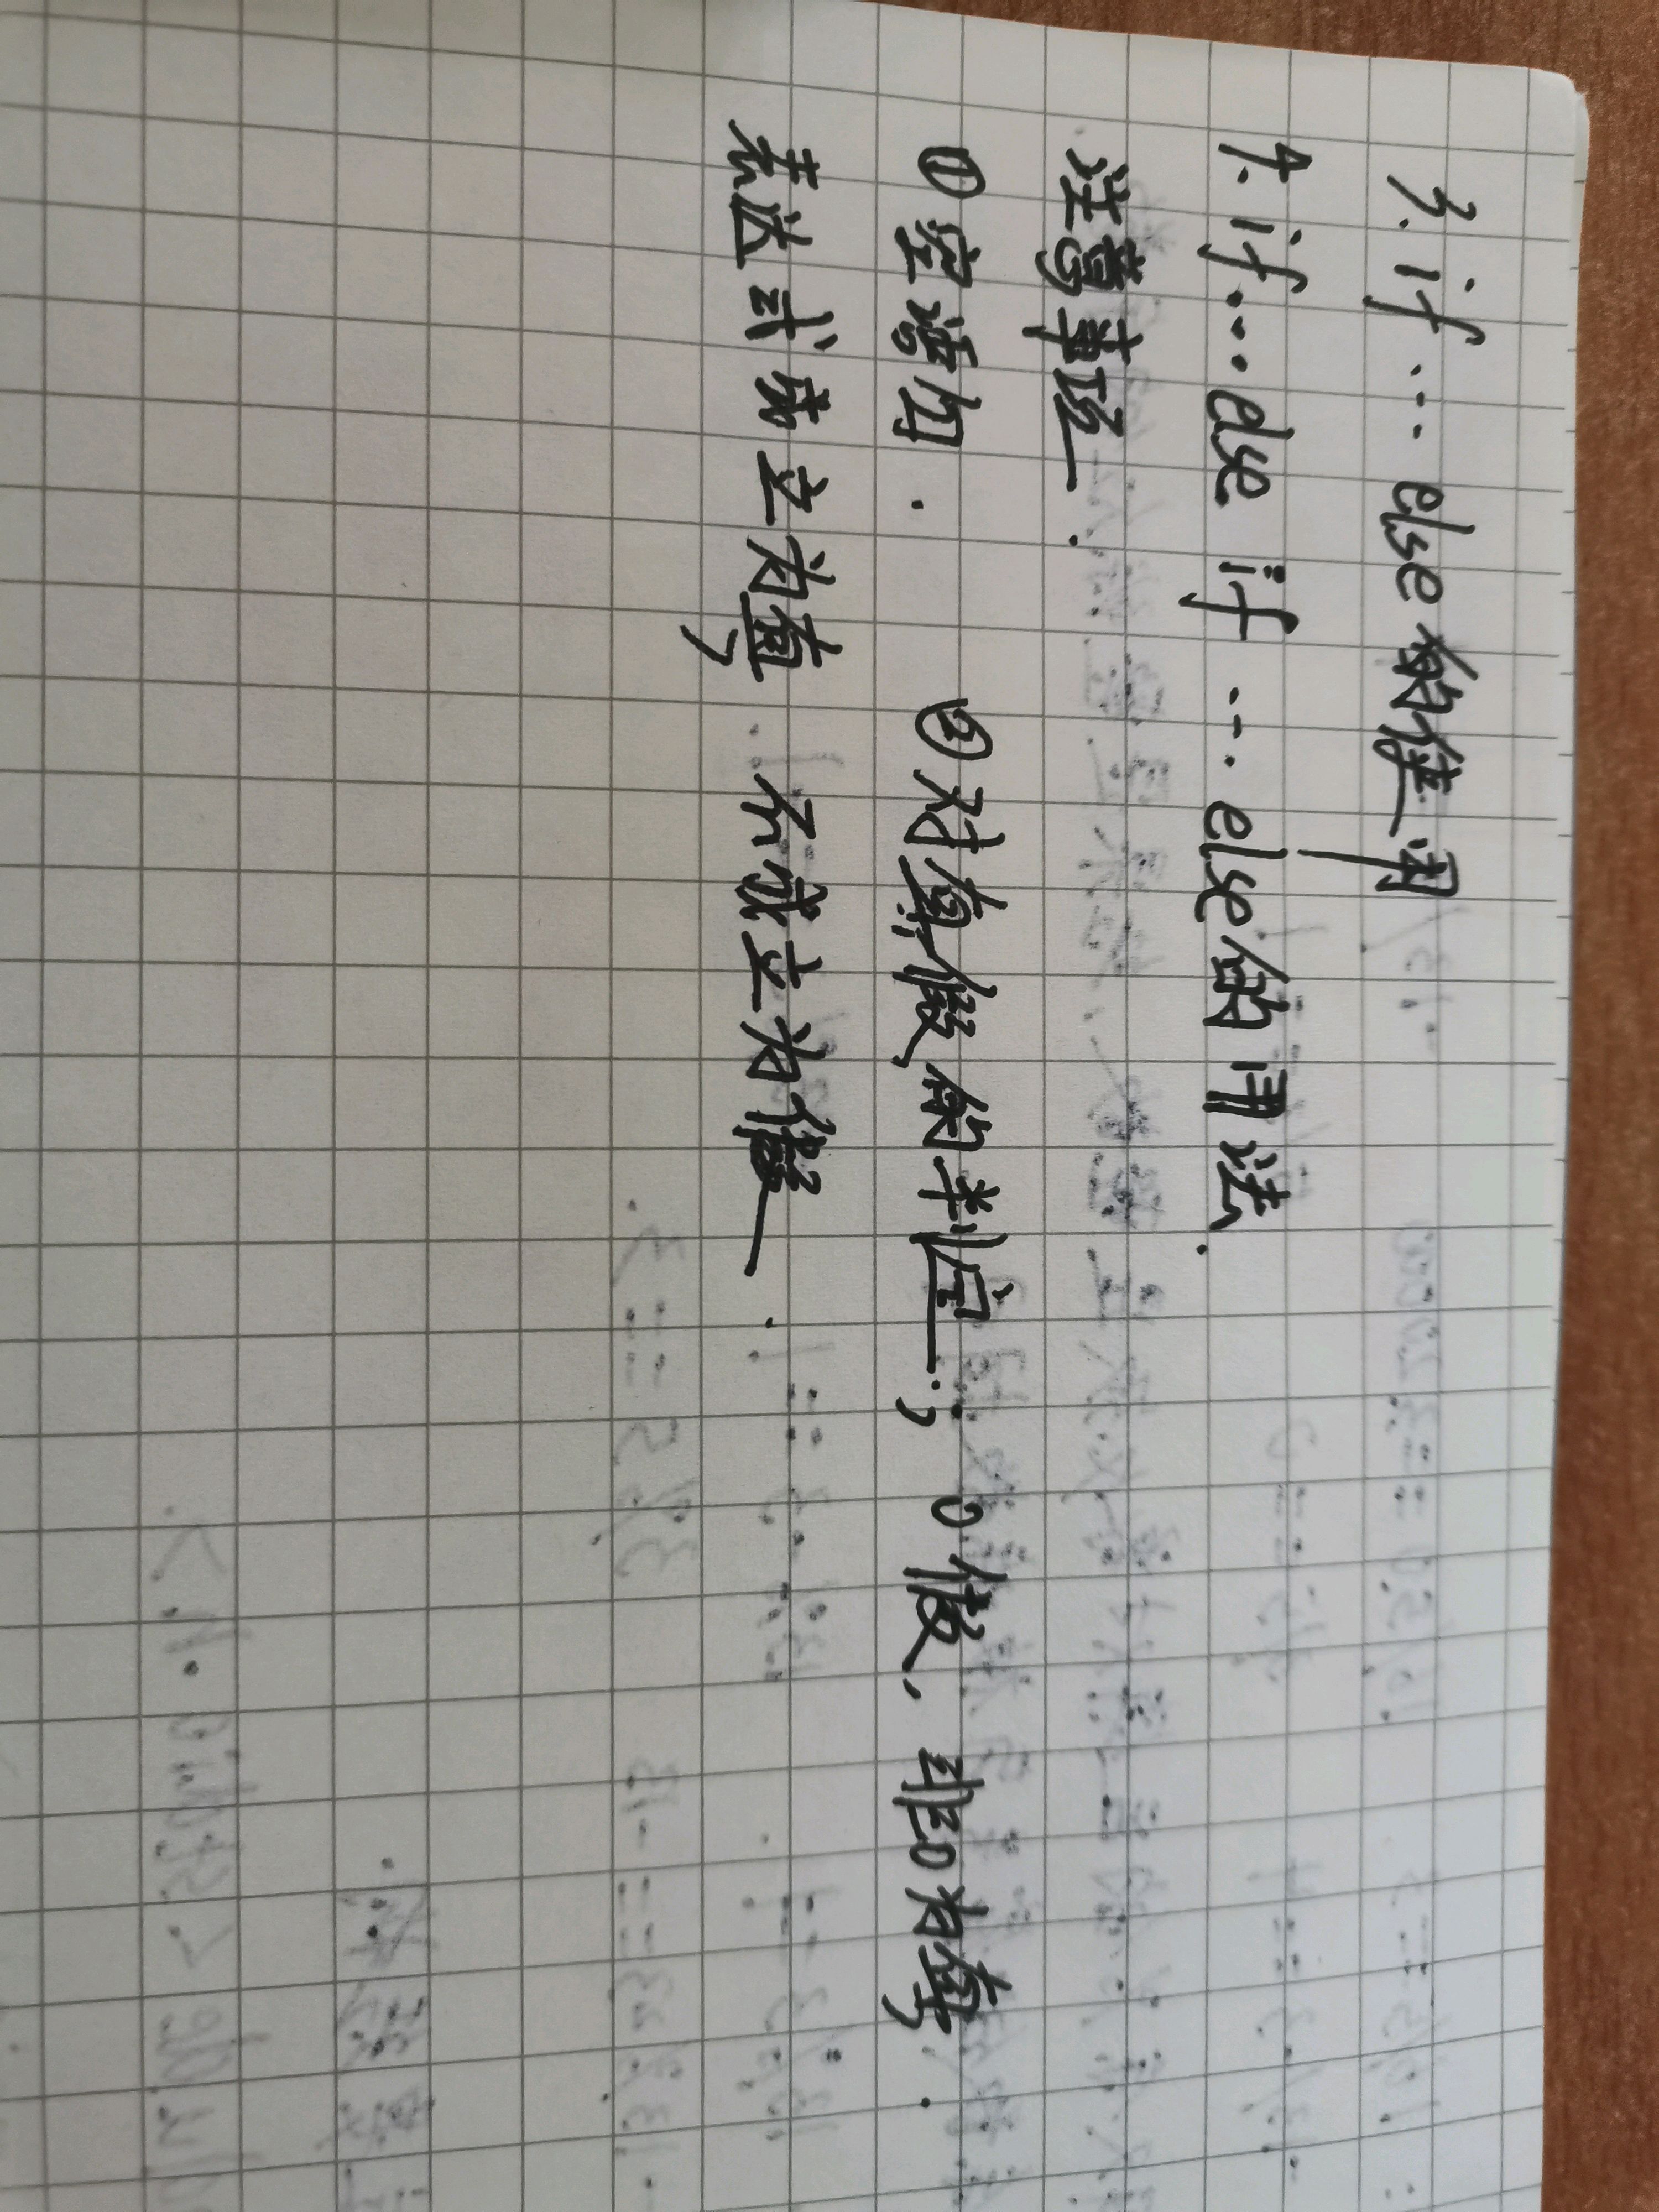 3. if … else 的使用
4. if … else if … else的用法.
注意事项.
①空语句. ②对真假的判定, 0假, 非0为真.
表达式成立为真, 不成立为假.